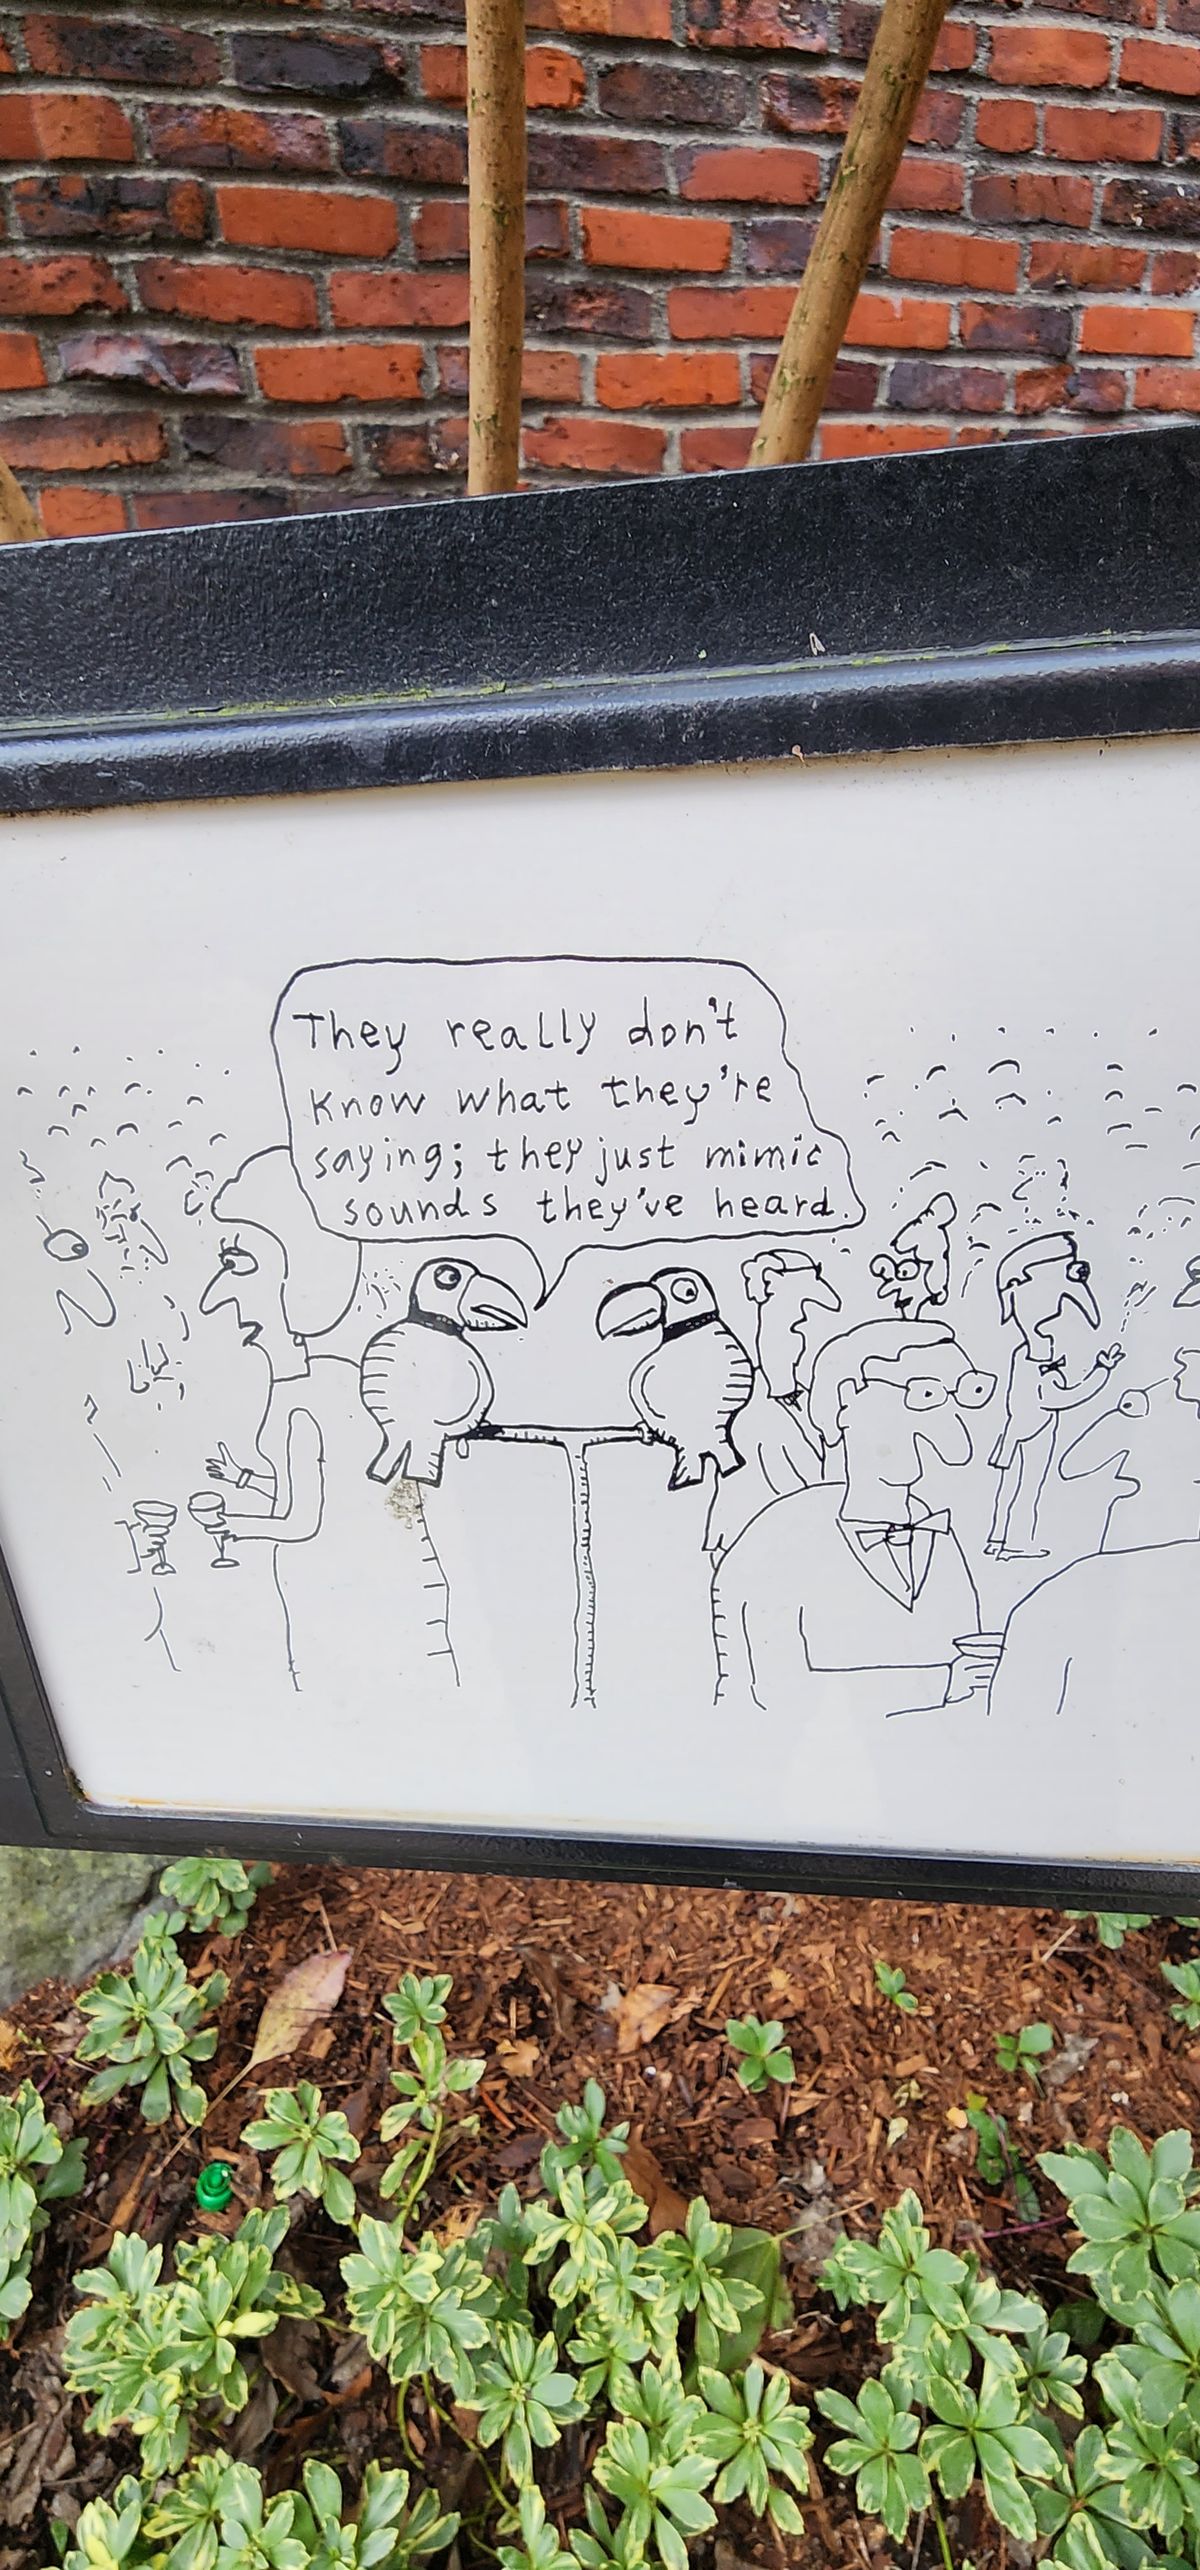 They really don't
know what they're
saying; they just mimic
sounds they've heard.